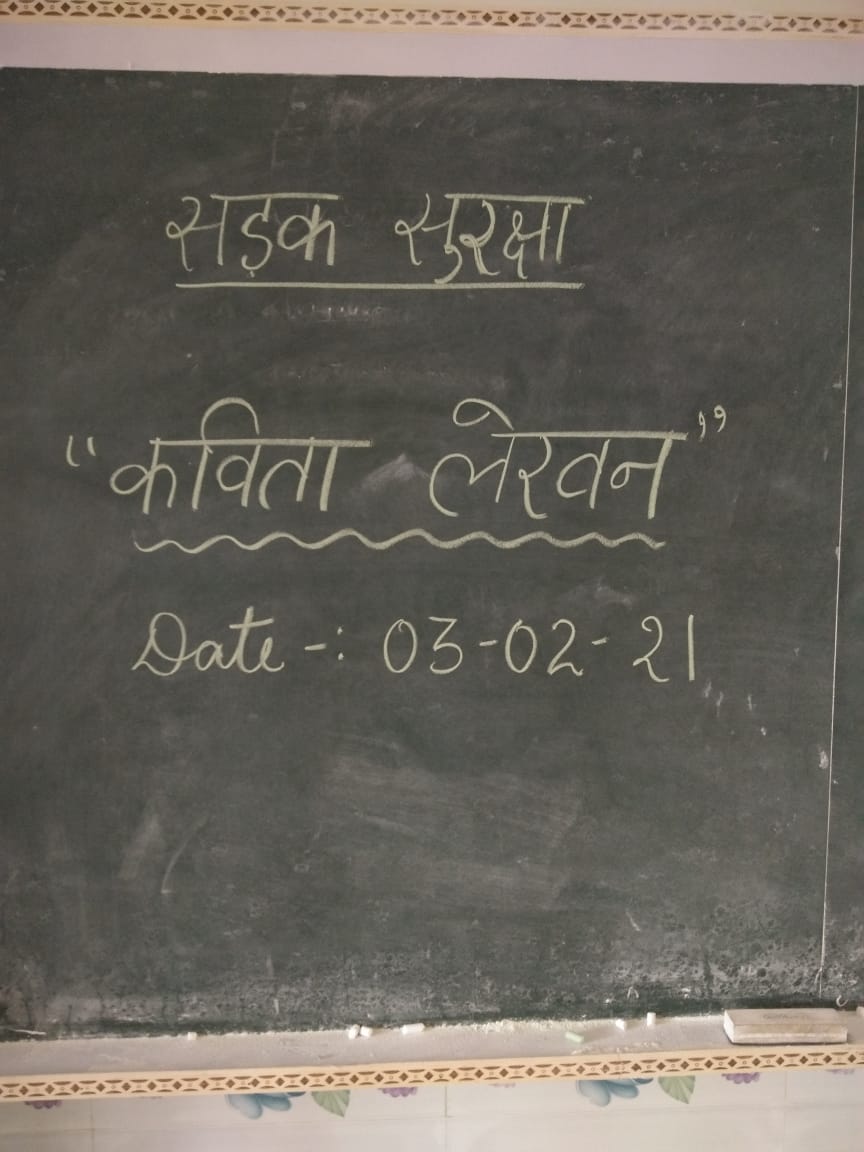 सड़क सुरक्षा
“कविता लेखन”
Date -: 03-02-21